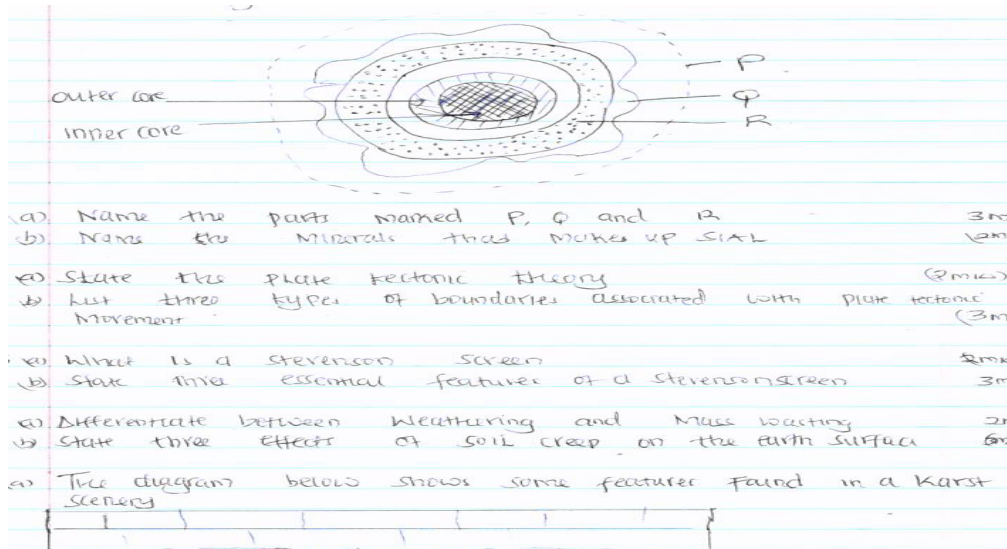 P
outer core
Q
inner core
R
(a) Name the parts marked P, Q and R 3m
(b) Name the Minerals that makes up SIAL
(a) State the plate tectonic theory (2mks)
(b) List three types of boundaries associated with plate tectonic
Movement (3m
(a) What is a stevenson screen 2mks
(b) State three essential features of a stevenson screen 3m
(a) Differentiate between Weathering and Mass wasting 2m
(b) State three effects of soil creep on the earth surface
(a) The diagram below shows some features found in a Karst
scenery